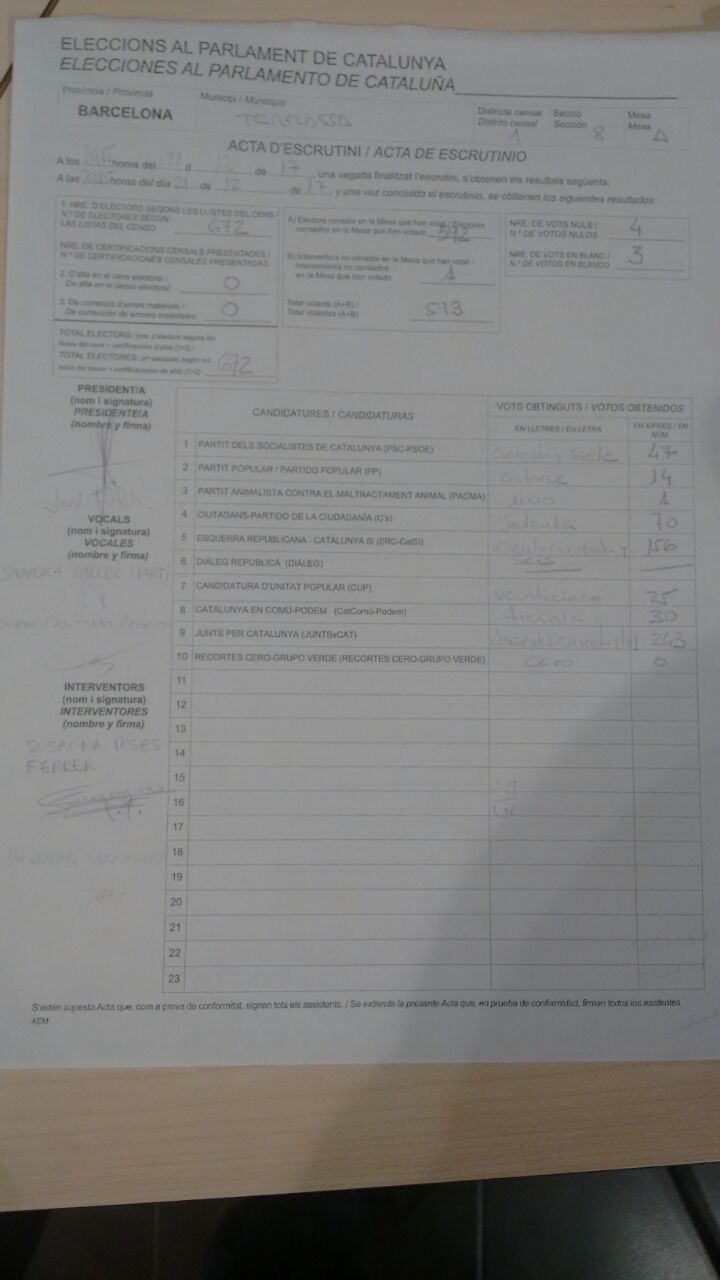 ELECCIONS AL PARLAMENT DE CATALUNYA
ELECCIONES AL PARLAMENTO DE CATALUÑA
Província / Provincia
Municipi / Municipio
Districte censal
Distrito censal
Secció
Sección
Mesa
Mesa
BARCELONA
TERRASSA
1
8
A
ACTA D'ESCRUTINI / ACTA DE ESCRUTINIO
A les 2015 hores del 21 d 12 de 17, una vegada finalitzat l'escrutini, s'obtenen els resultats següents:
A las 2015 horas del día 21 de 12 de 17 y una vez concluido el escrutinio, se obtienen los siguientes resultados:
1. NRE. D'ELECTORS SEGONS LES LLISTES DEL CENS /
N.º DE ELECTORES SEGÚN
LAS LISTAS DEL CENSO 672
NRE. DE CERTIFICACIONS CENSALS PRESENTADES /
N.º DE CERTIFICACIONES CENSALES PRESENTADAS
2. D'alta en el cens electoral /
De alta en el censo electoral: 0
3. De correcció d'errors materials /
De corrección de errores materiales: 0
TOTAL ELECTORS: (nre. d'electors segons les
llistes del cens + certificacions d'alta) (1+2) /
TOTAL ELECTORES: (nº electores según las
listas del censo + certificaciones de alta) (1+2) 672
A) Electors censats en la Mesa que han votat / Electores
censados en la Mesa que han votado 512
B) Interventors no censats en la Mesa que han votat /
Interventores no censados
en la Mesa que han votado 1
Total votants (A+B) /
Total votantes (A+B) 513
NRE. DE VOTS NULS /
N.º DE VOTOS NULOS 4
NRE. DE VOTS EN BLANC /
N.º DE VOTOS EN BLANCO 3
PRESIDENT/A
(nom i signatura)
PRESIDENTE/A
(nombre y firma)
VOCALS
(nom i signatura)
VOCALES
(nombre y firma)
SANDRA
INTERVENTORS
(nom i signatura)
INTERVENTORES
(nombre y firma)
SUSANNA ROSES
FERRER
CANDIDATURES / CANDIDATURAS
VOTS OBTINGUTS / VOTOS OBTENIDOS
EN LLETRES / EN LETRA
EN XIFRES / EN NÚM.
1 PARTIT DELS SOCIALISTES DE CATALUNYA (PSC-PSOE) cuarenta y siete 47
2 PARTIT POPULAR / PARTIDO POPULAR (PP) catorce 14
3 PARTIT ANIMALISTA CONTRA EL MALTRACTAMENT ANIMAL (PACMA) uno 1
4 CIUTADANS-PARTIDO DE LA CIUDADANÍA (C's) setenta 70
5 ESQUERRA REPUBLICANA - CATALUNYA SÍ (ERC-CatSí) cientocincuenta y seis 156
6 DIÀLEG REPUBLICÀ (DIÀLEG)
7 CANDIDATURA D'UNITAT POPULAR (CUP) veinticinco 25
8 CATALUNYA EN COMÚ-PODEM (CatComú-Podem) treinta 30
9 JUNTS PER CATALUNYA (JUNTSxCAT) 243
10 RECORTES CERO-GRUPO VERDE (RECORTES CERO-GRUPO VERDE) cero 0
11
12
13
14
15
16
17
18
19
20
21
22
23
S'estén aquesta Acta que, com a prova de conformitat, signen tots els assistents. / Se extiende la presente Acta que, en prueba de conformidad, firman todos los asistentes.
AEM